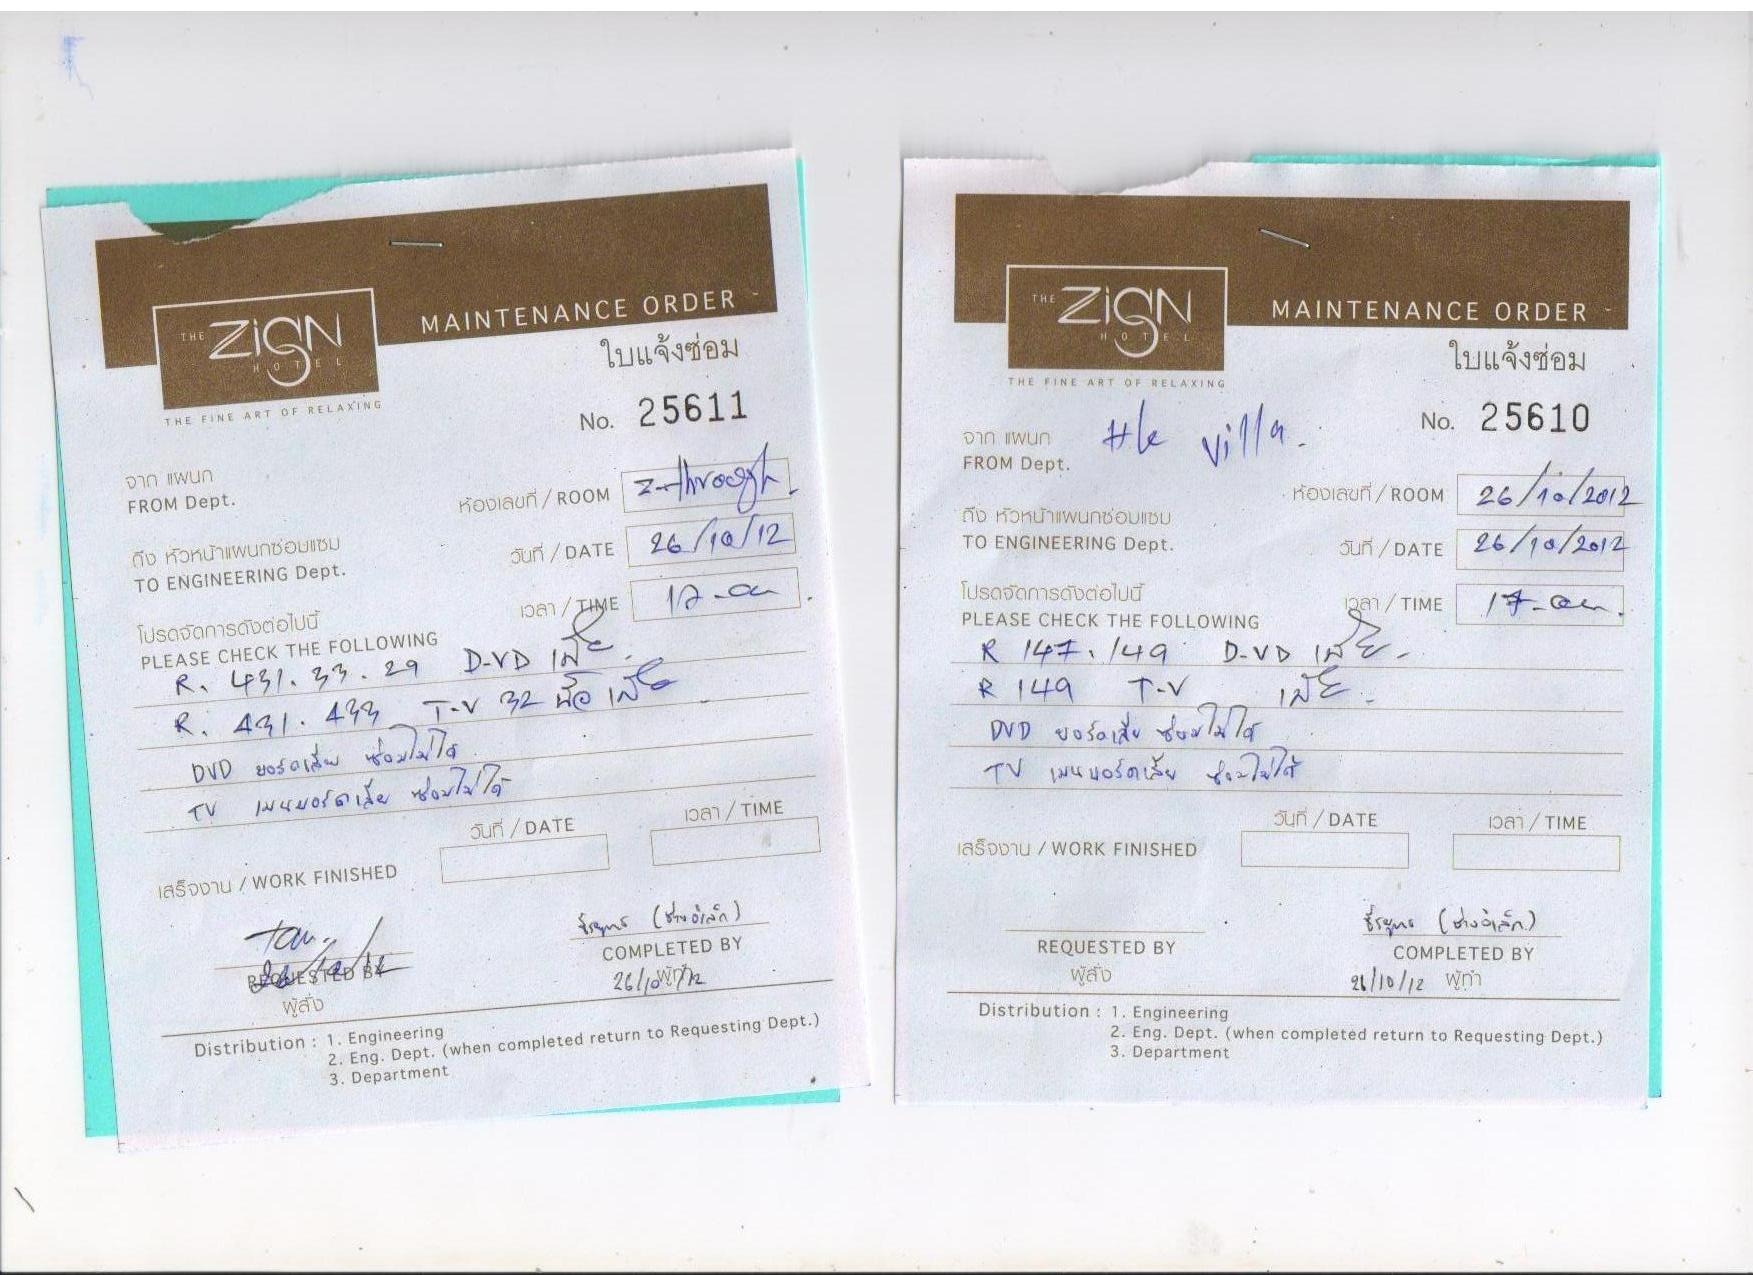 THE ZiGN HOTEL
MAINTENANCE ORDER
ใบแจ้งซ่อม
THE FINE ART OF RELAXING
No. 25611
จาก แผนก
FROM Dept.
ห้องเลขที่ / ROOM Z-through
ถึง หัวหน้าแผนกซ่อมแซม
TO ENGINEERING Dept.
วันที่ / DATE 26/10/12
เวลา / TIME
โปรดจัดการดังต่อไปนี้
PLEASE CHECK THE FOLLOWING
R. 431. 33. 29 D-VD เสีย
R. 431. 433 T-V 32 นิ้ว เสีย
DVD บอร์ดเสีย ซ่อมไม่ได้
TV เมนบอร์ดเสีย ซ่อมไม่ได้
วันที่ / DATE
เวลา / TIME
เสร็จงาน / WORK FINISHED
(ช่างอิเล็ก)
REQUESTED BY
ผู้สั่ง
COMPLETED BY
26/10/12 ผู้ทำ
Distribution : 1. Engineering
2. Eng. Dept. (when completed return to Requesting Dept.)
3. Department
THE ZiGN HOTEL
MAINTENANCE ORDER
ใบแจ้งซ่อม
THE FINE ART OF RELAXING
No. 25610
จาก แผนก
FROM Dept. villa.
ห้องเลขที่ / ROOM 26/10/2012
ถึง หัวหน้าแผนกซ่อมแซม
TO ENGINEERING Dept.
วันที่ / DATE 26/10/2012
เวลา / TIME
โปรดจัดการดังต่อไปนี้
PLEASE CHECK THE FOLLOWING
R 147. 149 D-VD เสีย
R 149 T-V เสีย
DVD บอร์ดเสีย ซ่อมไม่ได้
TV เมนบอร์ดเสีย ซ่อมไม่ได้
วันที่ / DATE
เวลา / TIME
เสร็จงาน / WORK FINISHED
(ช่างอิเล็ก)
REQUESTED BY
ผู้สั่ง
COMPLETED BY
26/10/12 ผู้ทำ
Distribution : 1. Engineering
2. Eng. Dept. (when completed return to Requesting Dept.)
3. Department